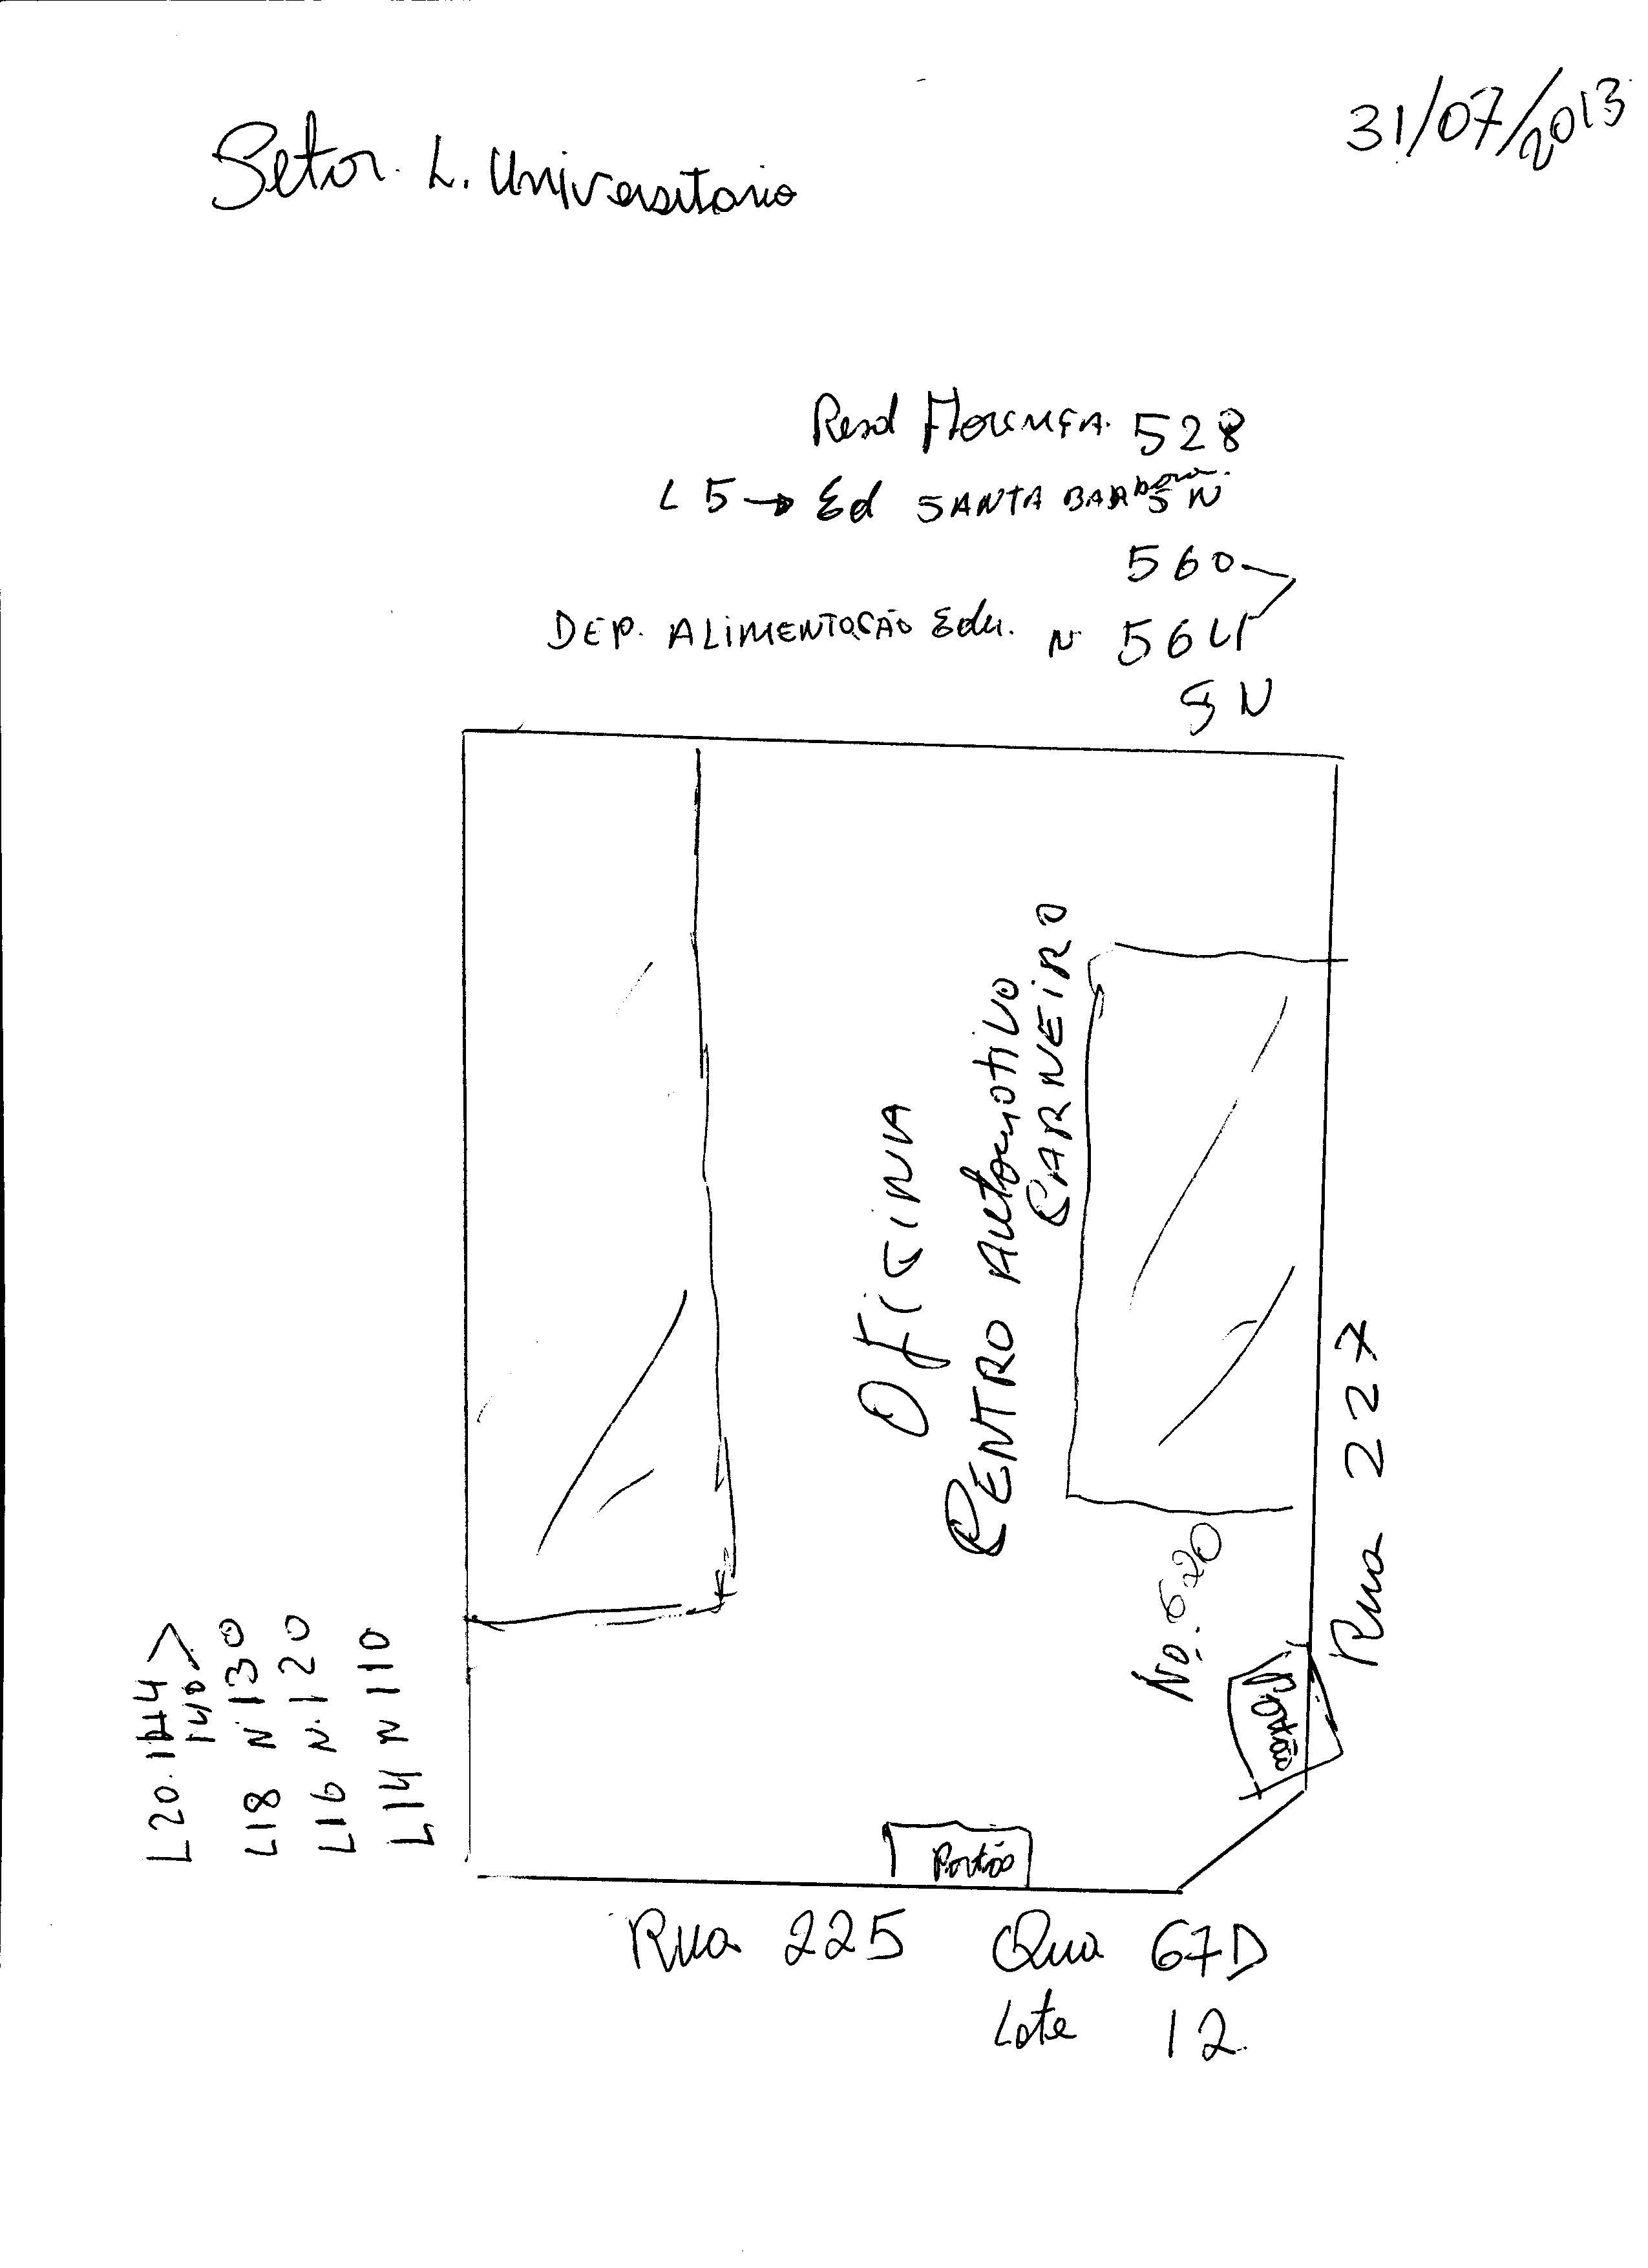 31/07/2013
Setor. L. Universitario
Resd Florença. 528
L 5 → Ed SANTA BARBARA SN
560
DEP. ALIMENTAÇÃO Edu. N 564
SN
Oficina
CENTRO Automotivo
CARNEIRO
Rua 227
No. 620
Portão
Portão
L20. 144 >
140 >
L18 N 130
L16 N. 120
L14 N 110
Rua 225 Qua 67D
Lote 12